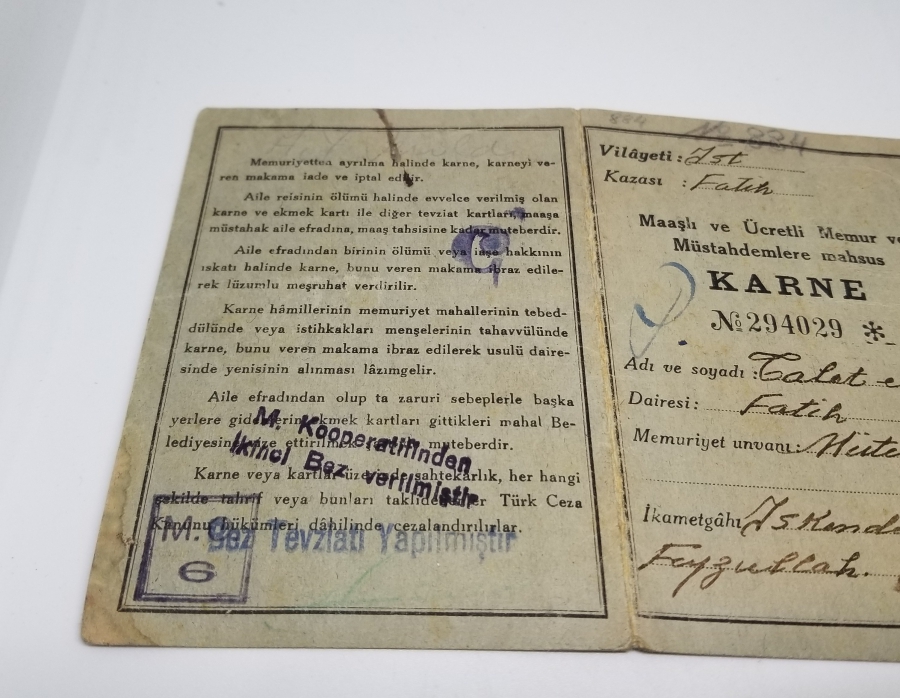 Memuriyetten ayrılma halinde karne, karneyi ve-
ren makama iade ve iptal edilir.
Aile reisinin ölümü halinde evvelce verilmiş olan
karne ve ekmek kartı ile diğer tevziat kartları, maaşa
müstahak aile efradına, maaş tahsisine kadar muteberdir.
Aile efradından birinin ölümü veya iaşe hakkının
ıskatı halinde karne, bunu veren makama ibraz edile-
rek lüzumlu meşruhat verdirilir.
Karne hâmillerinin memuriyet mahallerinin tebed-
dülünde veya istihkakları menşelerinin tahavvülünde
karne, bunu veren makama ibraz edilerek usulü daire-
sinde yenisinin alınması lâzımgelir.
Aile efradından olup ta zaruri sebeplerle başka
yerlere gidenlerin ekmek kartları gittikleri mahal Be-
lediyesince vize ettirilmek muteberdir.
Karne veya kartlar üzerinde sahtekârlık, her hangi
şekilde tahrif veya bunları taklid edenler Türk Ceza
Kanunu hükümleri dâhilinde cezalandırılırlar.
M. Kooperatifinden
İkinci Bez verilmiştir
Bez Tevziatı Yapılmıştır
M. C.
6
884
No 884
Vilâyeti : İst
Kazası : Fatih
Maaşlı ve Ücretli Memur ve
Müstahdemlere mahsus
KARNE
No 294029 *
Adı ve soyadı : Talat
Dairesi : Fatih
Memuriyet unvanı :
İkametgâhı
Feyzullah.